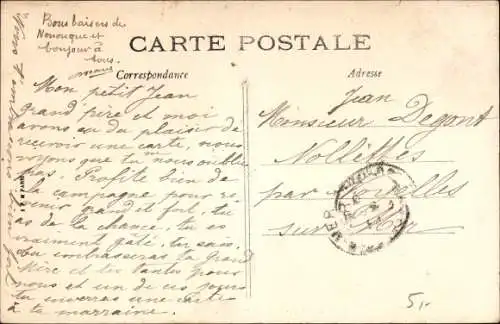 Bons baisers de
Nononque et
bonjour à
tous.
CARTE POSTALE
Correspondance
Adresse
Mon petit Jean
grand père et moi
avons eu du plaisir de
recevoir une carte, nous
voyons que tu nous oublies
pas. Profite bien de
la campagne pour re
venir grand et fort, tu
as de la chance, tu es
vraiment gâté, tu sais.
Tu embrasseras ta grand
Mère et les tantes pour
nous et un de ces jours
tu enverras une carte
à ta marraine.
Jean
Monsieur Degont
Nollettes
par Noyelles
sur Mer
5,-